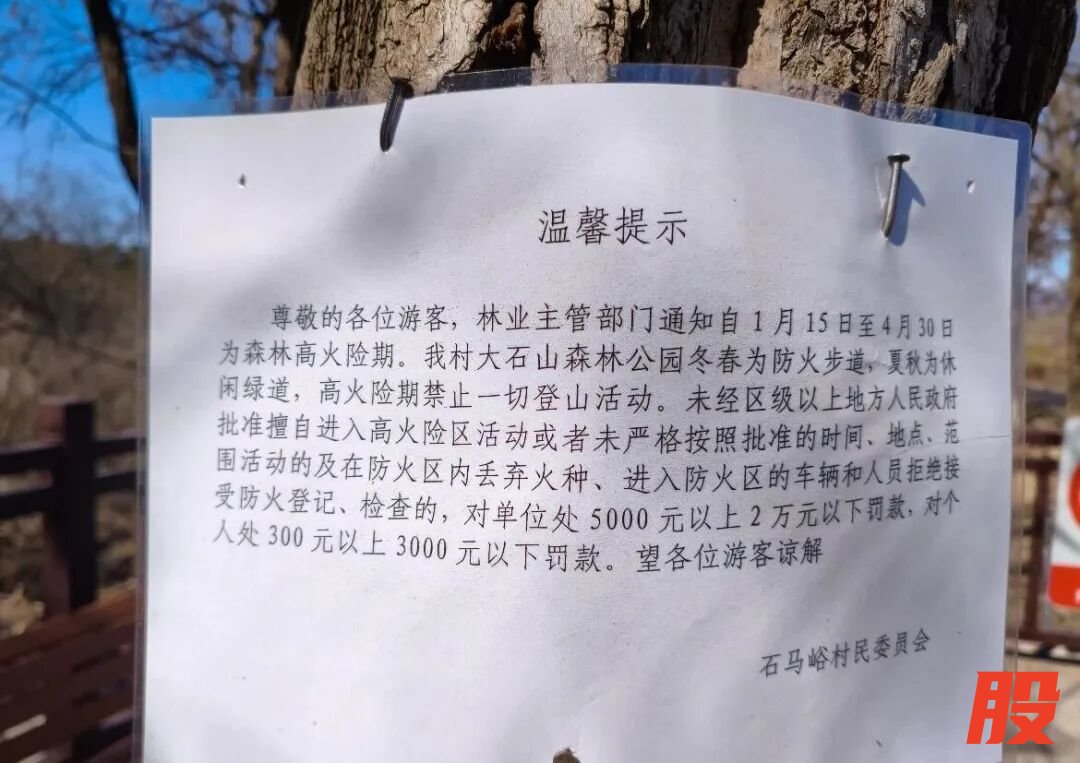 温馨提示
尊敬的各位游客，林业主管部门通知自1月15日至4月30日
为森林高火险期。我村大石山森林公园冬春为防火步道，夏秋为休
闲绿道，高火险期禁止一切登山活动。未经区级以上地方人民政府
批准擅自进入高火险区活动或者未严格按照批准的时间、地点、范
围活动的及在防火区内丢弃火种、进入防火区的车辆和人员拒绝接
受防火登记、检查的，对单位处5000元以上2万元以下罚款，对个
人处300元以上3000元以下罚款。望各位游客谅解
石马峪村民委员会
股